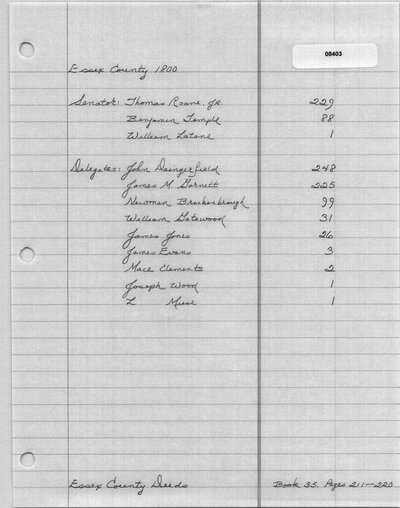 08403
Essex County 1800
Senator: Thomas Roane Jr 229
Benjamin Temple 88
William Latane 1
Delegates: John Daingerfield 248
James M. Garnett 225
Newman Brockenbrough 99
William Gatewood 31
James Jones 26
James Evans 3
Mace Clements 2
Joseph Wood 1
L Muse 1
Essex County Deeds Book 35. Pages 211-220